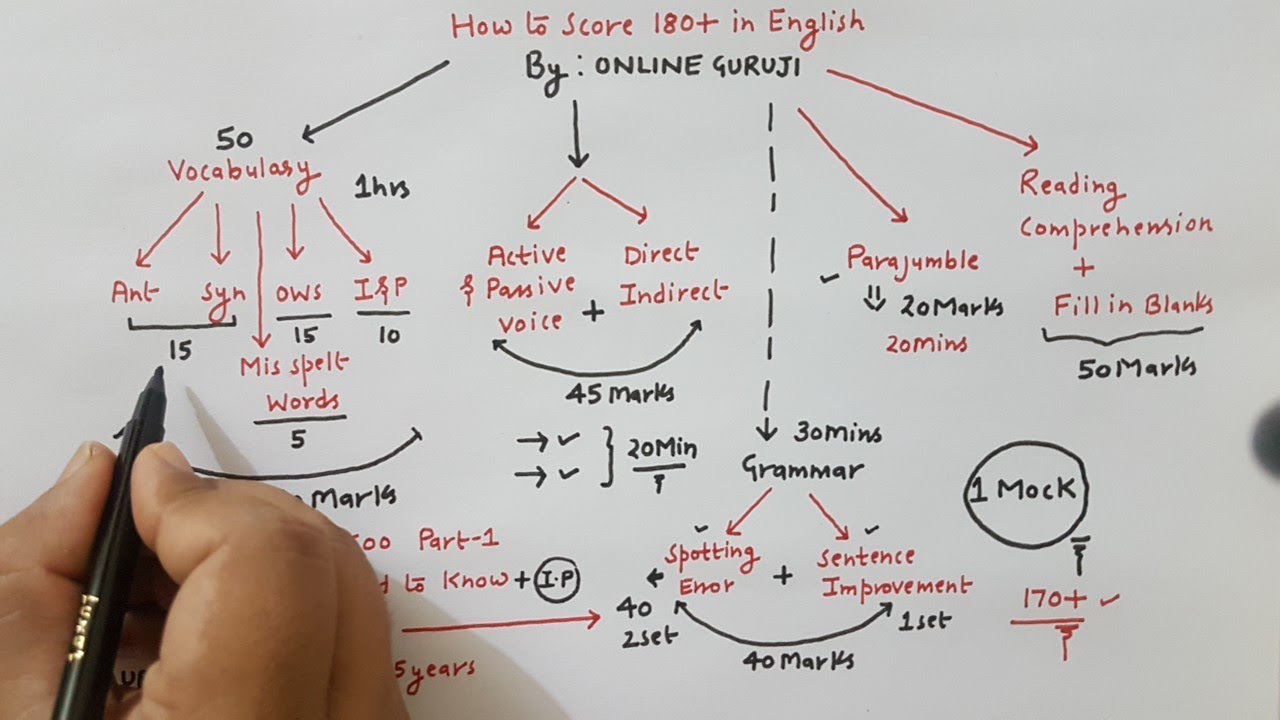 How to Score 180+ in English
By : ONLINE GURUJI
50
Vocabulary
1hrs
Ant
Syn
OWS
I&P
15
15
10
Mis spelt
Words
5
Marks
500 Part-1
to Know + I.P
5 years
Active
& Passive
Voice
+
Direct
Indirect
45 Marks
→ ✓
→ ✓
20Min
30mins
Grammar
Spotting
Error
+
Sentence
Improvement
40
2set
1set
40 Marks
Parajumble
20Marks
20mins
Reading
Comprehension
+
Fill in Blanks
50Marks
1 Mock
170+ ✓